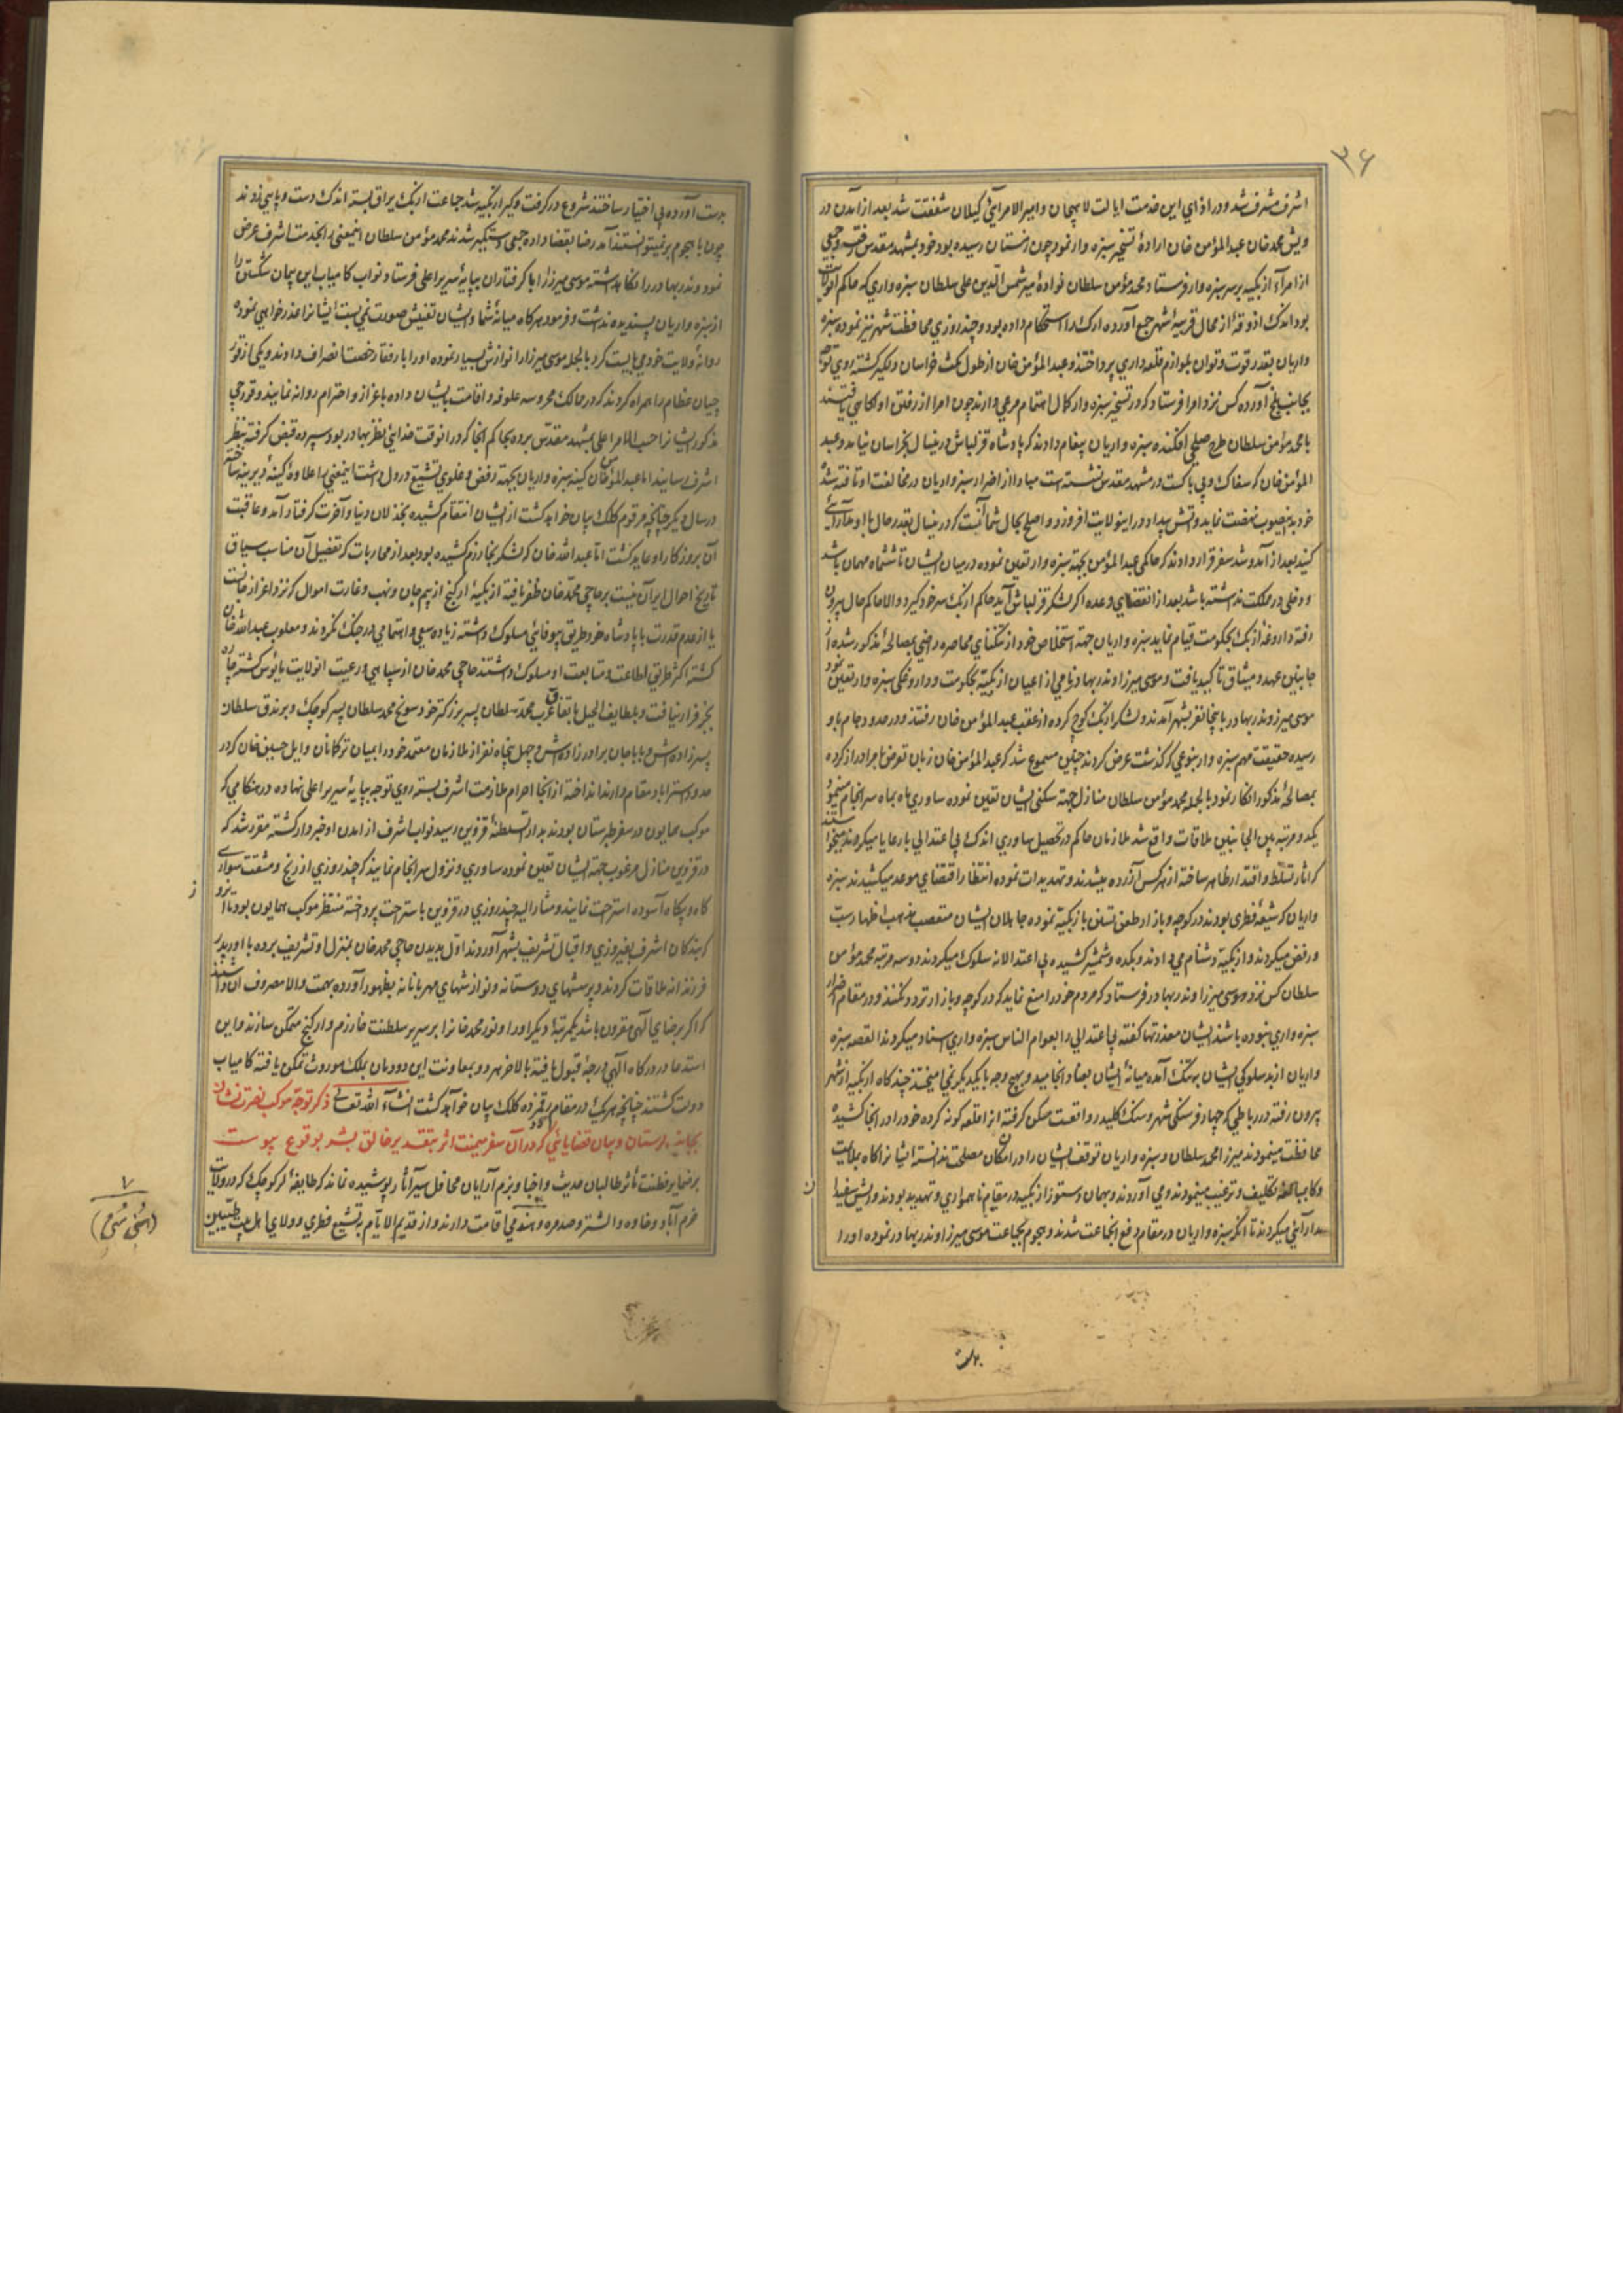 ۳۶
اشرف مشرف شد و در ازای این خدمت ایالت لاهیجان و امیر الامرائی گیلان شفقت شد بعد از آمدن در
ویش محمد خان عبد المؤمن خان ارادهٔ تسخیر سبزه وار نمود چون زمستان رسیده بود خود بمشهد مقدس رفته و جمعی
از امرآء ازبکیه بر سر سبزه وار فرستاد محمد مؤمن سلطان نوادهٔ میر شمس الدین علی سلطان سبزه واری که حاکم آنولایت
بود اندک اذوقهٔ از محال قریبهٔ شهر جمع آورده ارک را استحکام داده بود و چند روزی محافظت شهر نیز نموده سبزه
واریان بقدر قوت و توان بلوازم قلعه داری پرداختند و عبد المؤمن خان از طول مکث خراسان دلگیر گشته روی توجه
بجانب بلخ آورده کس نزد امرا فرستاد که در تسخیر سبزه وار کمال اهتمام مرعی دارند چون امرا از رفتن او آگاهی یافتند
با محمد مؤمن سلطان طرح صلحی افکنده سبزه واریان پیغام دادند که پادشاه قزلباش درینسال بخراسان نیامد و عبد
المؤمن خان که سفاک و بی باکست در مشهد مقدس نشسته است مبادا از اضرار سبزه واریان در مخالفت او تافته شده
خود به اینصوب نهضت نماید و آتش بیداد در این ولایت افروزد و اصلح بحال شما آنست که درینسال بقدر حال با او مدارائی
کنید بعد از آمد و شد سفرا قرار دادند که حاکمی عبد المؤمن بجهة سبزه وار تعین نموده در میان ایشان تا ششماه مهمان باشد
و دخلی در مملکت نداشته باشد بعد از انقضای وعده اگر لشکر قزلباش آید حاکم ازبک سر خود گیرد و الا حاکم حال بیرون
رفته داروغهٔ ازبک بحکومت قیام نماید سبزه واریان جهة استخلاص خود از تنگنای محاصره راضی بمصالحهٔ مذکور شده از
جانبین عهد و میثاق تاکید یافت و موسی میرزا و نذر بهادر نامی از اعیان ازبکیه بحکومت و داروغگی سبزه وار تعین نمود
موسی میرزا و نذر بهادر با پنجاه نفر بشهر آمدند و لشکر ازبک کوچ کرده از عقب عبد المؤمن خان رفتند و در حدود جام باو
رسیده حقیقت مهم سبزه وار بنوعی که گذشت عرض کردند چنین مسموع شد که عبد المؤمن خان زبان تعرض بامرا دراز کرده
بمصالحهٔ مذکور انکار نمود بالجمله محمد مؤمن سلطان منازل جهة سکنی ایشان تعین نموده ساوری ماه بماه سرانجام مینمود
یکدو مرتبه بین الجانبین ملاقات واقع شد ملازمان حاکم در تحصیل ساوری اندک بی اعتدالی با رعایا میکردند میخواستند
که آثار تسلط و اقتدار ظاهر ساخته از هر کس آزرده میشدند و تهدیدات نموده انتظار انقضای موعد میکشیدند سبزه
واریان که شیعهٔ فطری بودند در کوچه و بازار طعن تسنن با ازبکیه نموده جاهلان ایشان متعصب مذهب اظهار سب
و رفض میکردند و ازبکیه دشنام میدادند و یکده و شمشیر کشیده بی اعتدالانه سلوک میکردند دو سه مرتبه محمد مؤمن
سلطان کس نزد موسی میرزا و نذر بهادر فرستاد که مردم خود را منع نماید که در کوچه و بازار تردد نکنند و در مقام اضرار
سبزه واری نبوده باشند ایشان معذرتها گفته بی اعتدالی را بعوام الناس سبزه واری اسناد میکردند القصه سبزه
واریان از بد سلوکی ایشان بتنگ آمده میانهٔ ایشان بعناد انجامید و بهیچ وجه با یکدیگر نمی آمیختند چند گاه ازبکیه از شهر
بیرون رفته در رباطی که چهار فرسنگی شهر و سنگ کلیدر واقعست مسکن گرفته آنرا قلعه گونه کرده خود را در آنجا کشیده
محافظت مینمودند میرزا محمد سلطان و سبزه واریان توقف ایشان را در آن مکان مصلحت ندانسته ایشانرا گاه بملایمت
و گاه بمبالغه تکلیف و ترغیب مینمودند و می آوردند و بهمان دستور ازبکیه در مقام ناهمواری و تهدید بودند و ریش سفیدان
مدارائی میکردند تا آنکه سبزه واریان در مقام دفع آنجماعت شدند و هجوم بجماعت موسی میرزا و نذر بهادر نموده او را
بدست آورده بی اختیار ساختند شروع در گرفت و گیر ازبکیه شد جماعت ازبک یراق بسته اندک دست و پایی زدند
چون با هجوم بر نمیتوانستند آمد رضا بقضا داده جمعی دستگیر شدند محمد مؤمن سلطان اینمعنی را بخدمت اشرف عرض
نمود و نذر بهادر را نگاهداشته موسی میرزا را با گرفتاران بپایهٔ سریر اعلی فرستاد نواب کامیاب این پیمان شکنی را
از سبزه واریان پسندیده نداشت و فرمود هر گاه میانهٔ شما و ایشان تفتیش صورت نمی بست ایشانرا عذر خواهی نموده
روانهٔ ولایت خود می بایست کرد بالجمله موسی میرزا را نوازش بسیار نموده او را با رفقا رخصت انصراف دادند و یکی از قور
چیان عظام را همراه کردند که در ممالک محروسه علوفه و اقامت بایشان داده باعزاز و احترام روانه نمایند و قورچی
مذکور ایشانرا حسب الامر اعلی بمشهد مقدس برده بحاکم آنجا که در آنوقت خدای نظر بهادر بود سپرده قبض گرفته بنظر
اشرف رسانید اما عبد المؤمن خان کینه سبزه واریان بجهة رفض و غلوی تشیع در دل داشت اینمعنی را علاوهٔ کینهٔ دیرینه ساخته
در سال دیگر چنانچه مرقوم کلک بیان خواهد گشت از ایشان انتقام کشیده بخذلان دنیا و آخرت گرفتار آمد و عاقبت
آن بروزگار او عاید گشت اما عبد الله خان که لشکر بخوارزم کشیده بود بعد از محاربات که تفصیل آن مناسب سیاق
تاریخ احوال ایران نیست بر حاجی محمد خان ظفر یافته ازبکیهٔ ارگنج از بیم جان و نهب و غارت اموال که نزد اعزاز جانست
یا از عدم قدرت با پادشاه خود طریق بیوفائی مسلوک داشته زیاده سعی و اهتمامی در جنگ نکردند و مغلوب عبد الله خان
گشته اکثر طریق اطاعت و متابعت او مسلوک داشتند حاجی محمد خان از سپاهی و رعیت آنولایت مایوس گشته چاره
بجز فرار نیافت و بلطایف الحیل باتفاق عرب محمد سلطان پسر بزرگتر خود سونج محمد سلطان پسر کوچک و برندق سلطان
پسر زاده اش و باباجان برادر زاده اش و چهل پنجاه نفر از ملازمان معتمد خود را بمیان ترکمانان و ایل حسین خان که در
حدود استراباد مقام دارند انداخته از آنجا احرام ملازمت اشرف بسته روی توجه بپایهٔ سریر اعلی نهاده در هنگامی که
موکب همایون در سفر طبرستان بودند بدار السلطنهٔ قزوین رسید نواب اشرف از آمدن او خبردار گشته مقرر شد که
در قزوین منازل مرغوب جهة ایشان تعین نموده ساوری و نزول سرانجام نمایند که چند روزی از رنج و مشقت سواری
گاه و بیگاه آسوده استراحت نمایند و مشار الیه چند روزی در قزوین باستراحت پرداخته منتظر موکب همایون بود تا آنروز
که بندگان اشرف بفیروزی و اقبال تشریف بشهر آوردند اول بدیدن حاجی محمد خان بمنزل او تشریف برده با او پدر
فرزندانه ملاقات کردند و پرسشهای دوستانه و نوازشهای مهربانانه بظهور آورده همت والا مصروف آن داشتند
که اگر برضای الهی مقرون باشد یکمرتبهٔ دیگر او را و نور محمد خانرا بر سریر سلطنت خوارزم و ارگنج متمکن سازند و این
استدعا در درگاه الهی درجهٔ قبول یافته بالاخر هر دو بمعاونت این دودمان بملک موروث تمکن یافته کامیاب
دولت گشتند چنانچه هر یک در مقام رقمزدهٔ کلک بیان خواهد گشت انشاء الله تعالی ذکر توجه موکب نصرت نشان
بجانب لرستان و بیان قضایائی که در آن سفر میمنت اثر بتقدیر خالق بشر بوقوع پیوست
بر ضمایر فطنت مآثر طالبان حدیث و اخبار و بزم آرایان محافل سیر آثار پوشیده نماند که طایفهٔ لر کوچک که در ولایت
خرم آباد و خاوه و الشتر و صدمره و هندمی اقامت دارند و از قدیم الایام به تشیع فطری و ولای اهل بیت طیبین